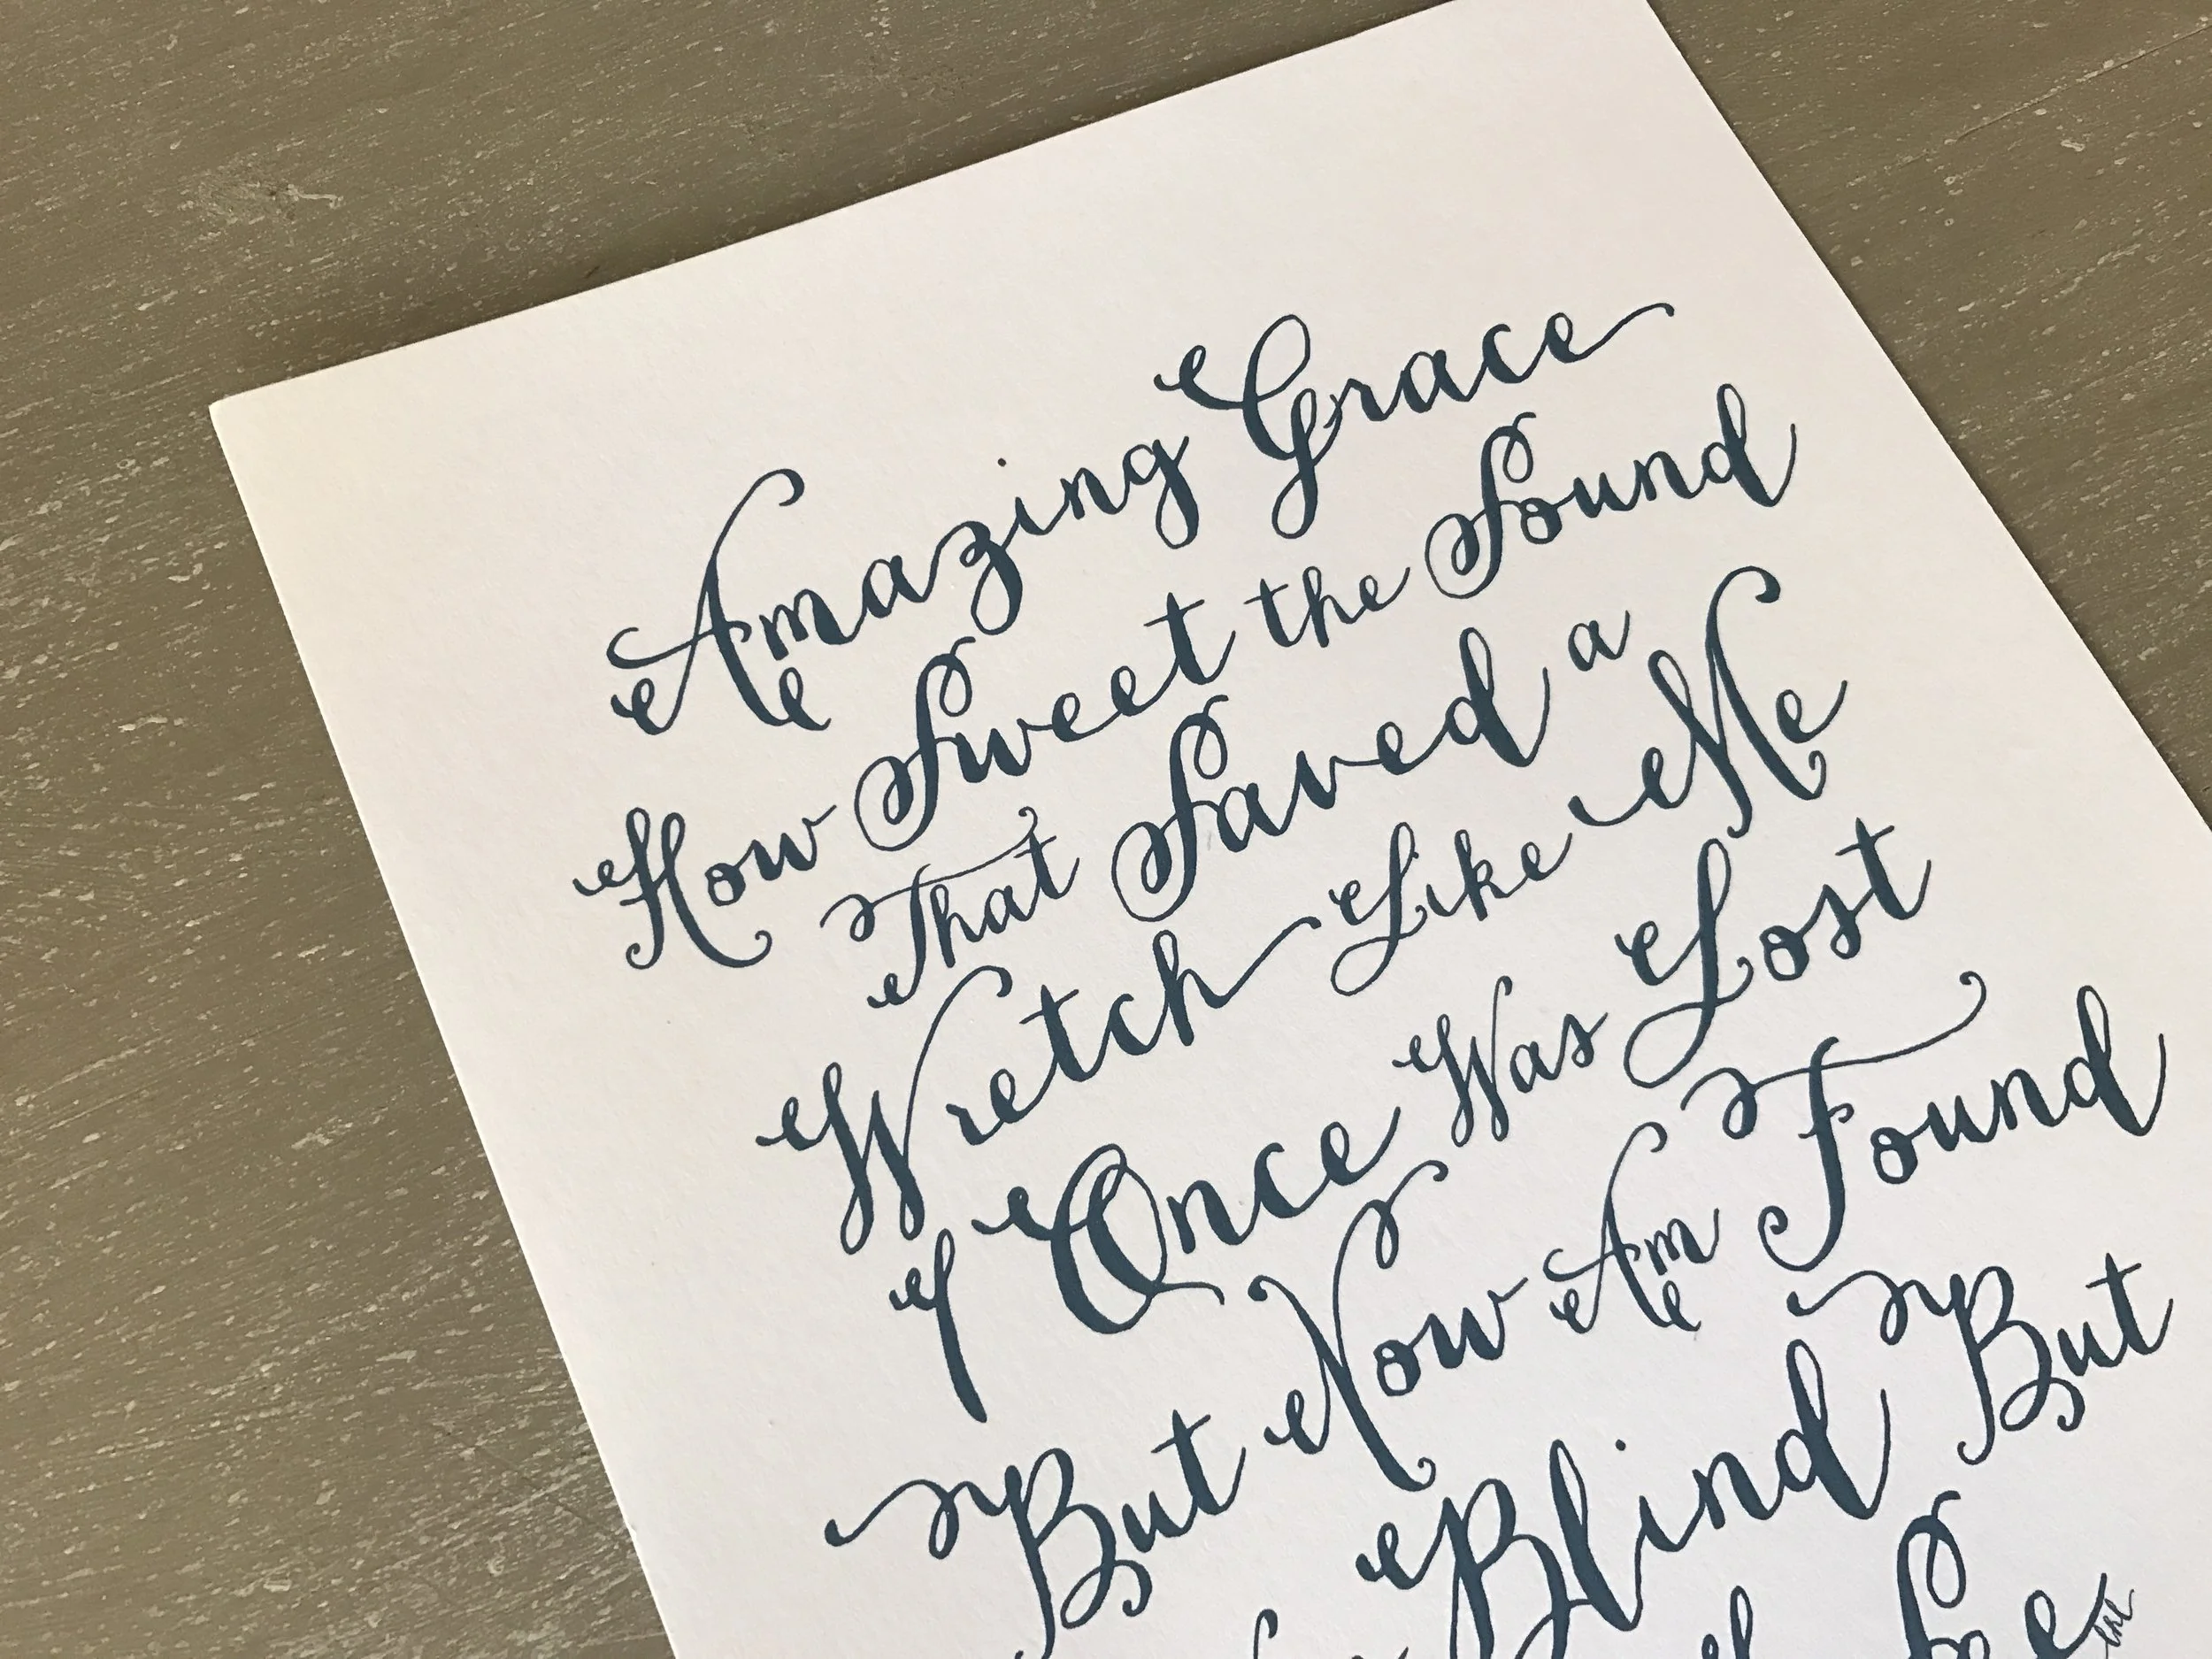 Amazing Grace
How Sweet the Sound
That Saved a
Wretch Like Me
I Once Was Lost
But Now Am Found
Blind But
See